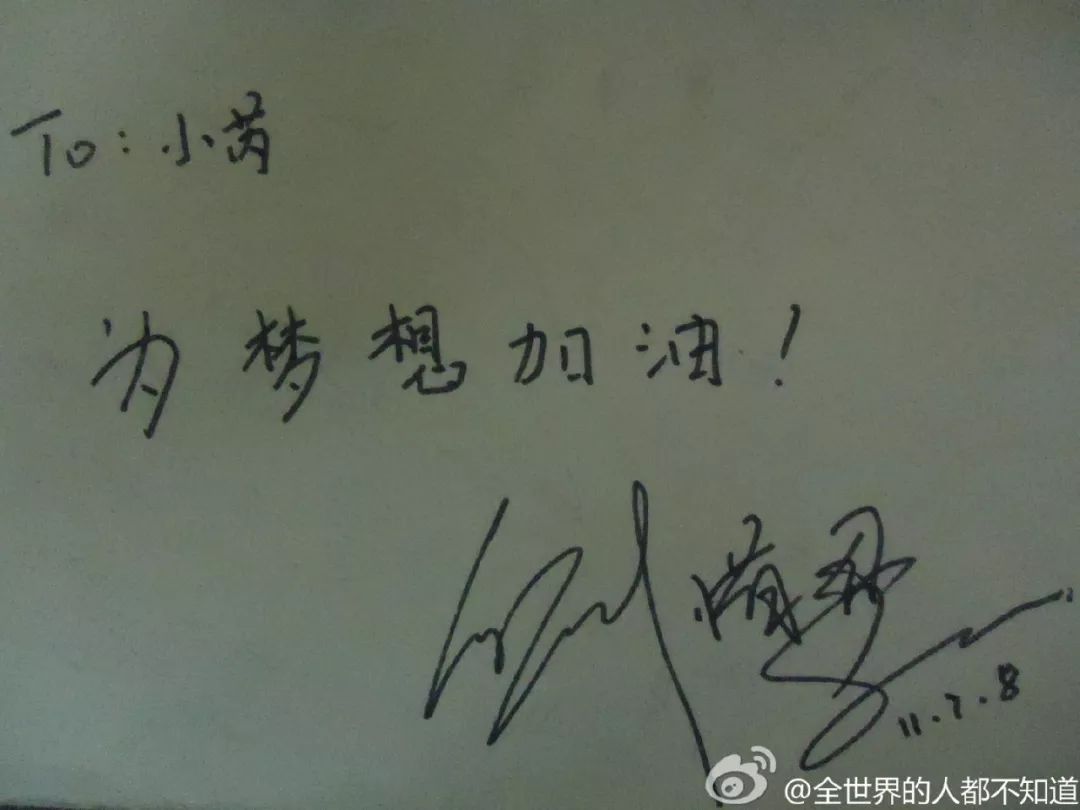 To:小芮
为梦想加油!
11.7.8
@全世界的人都不知道